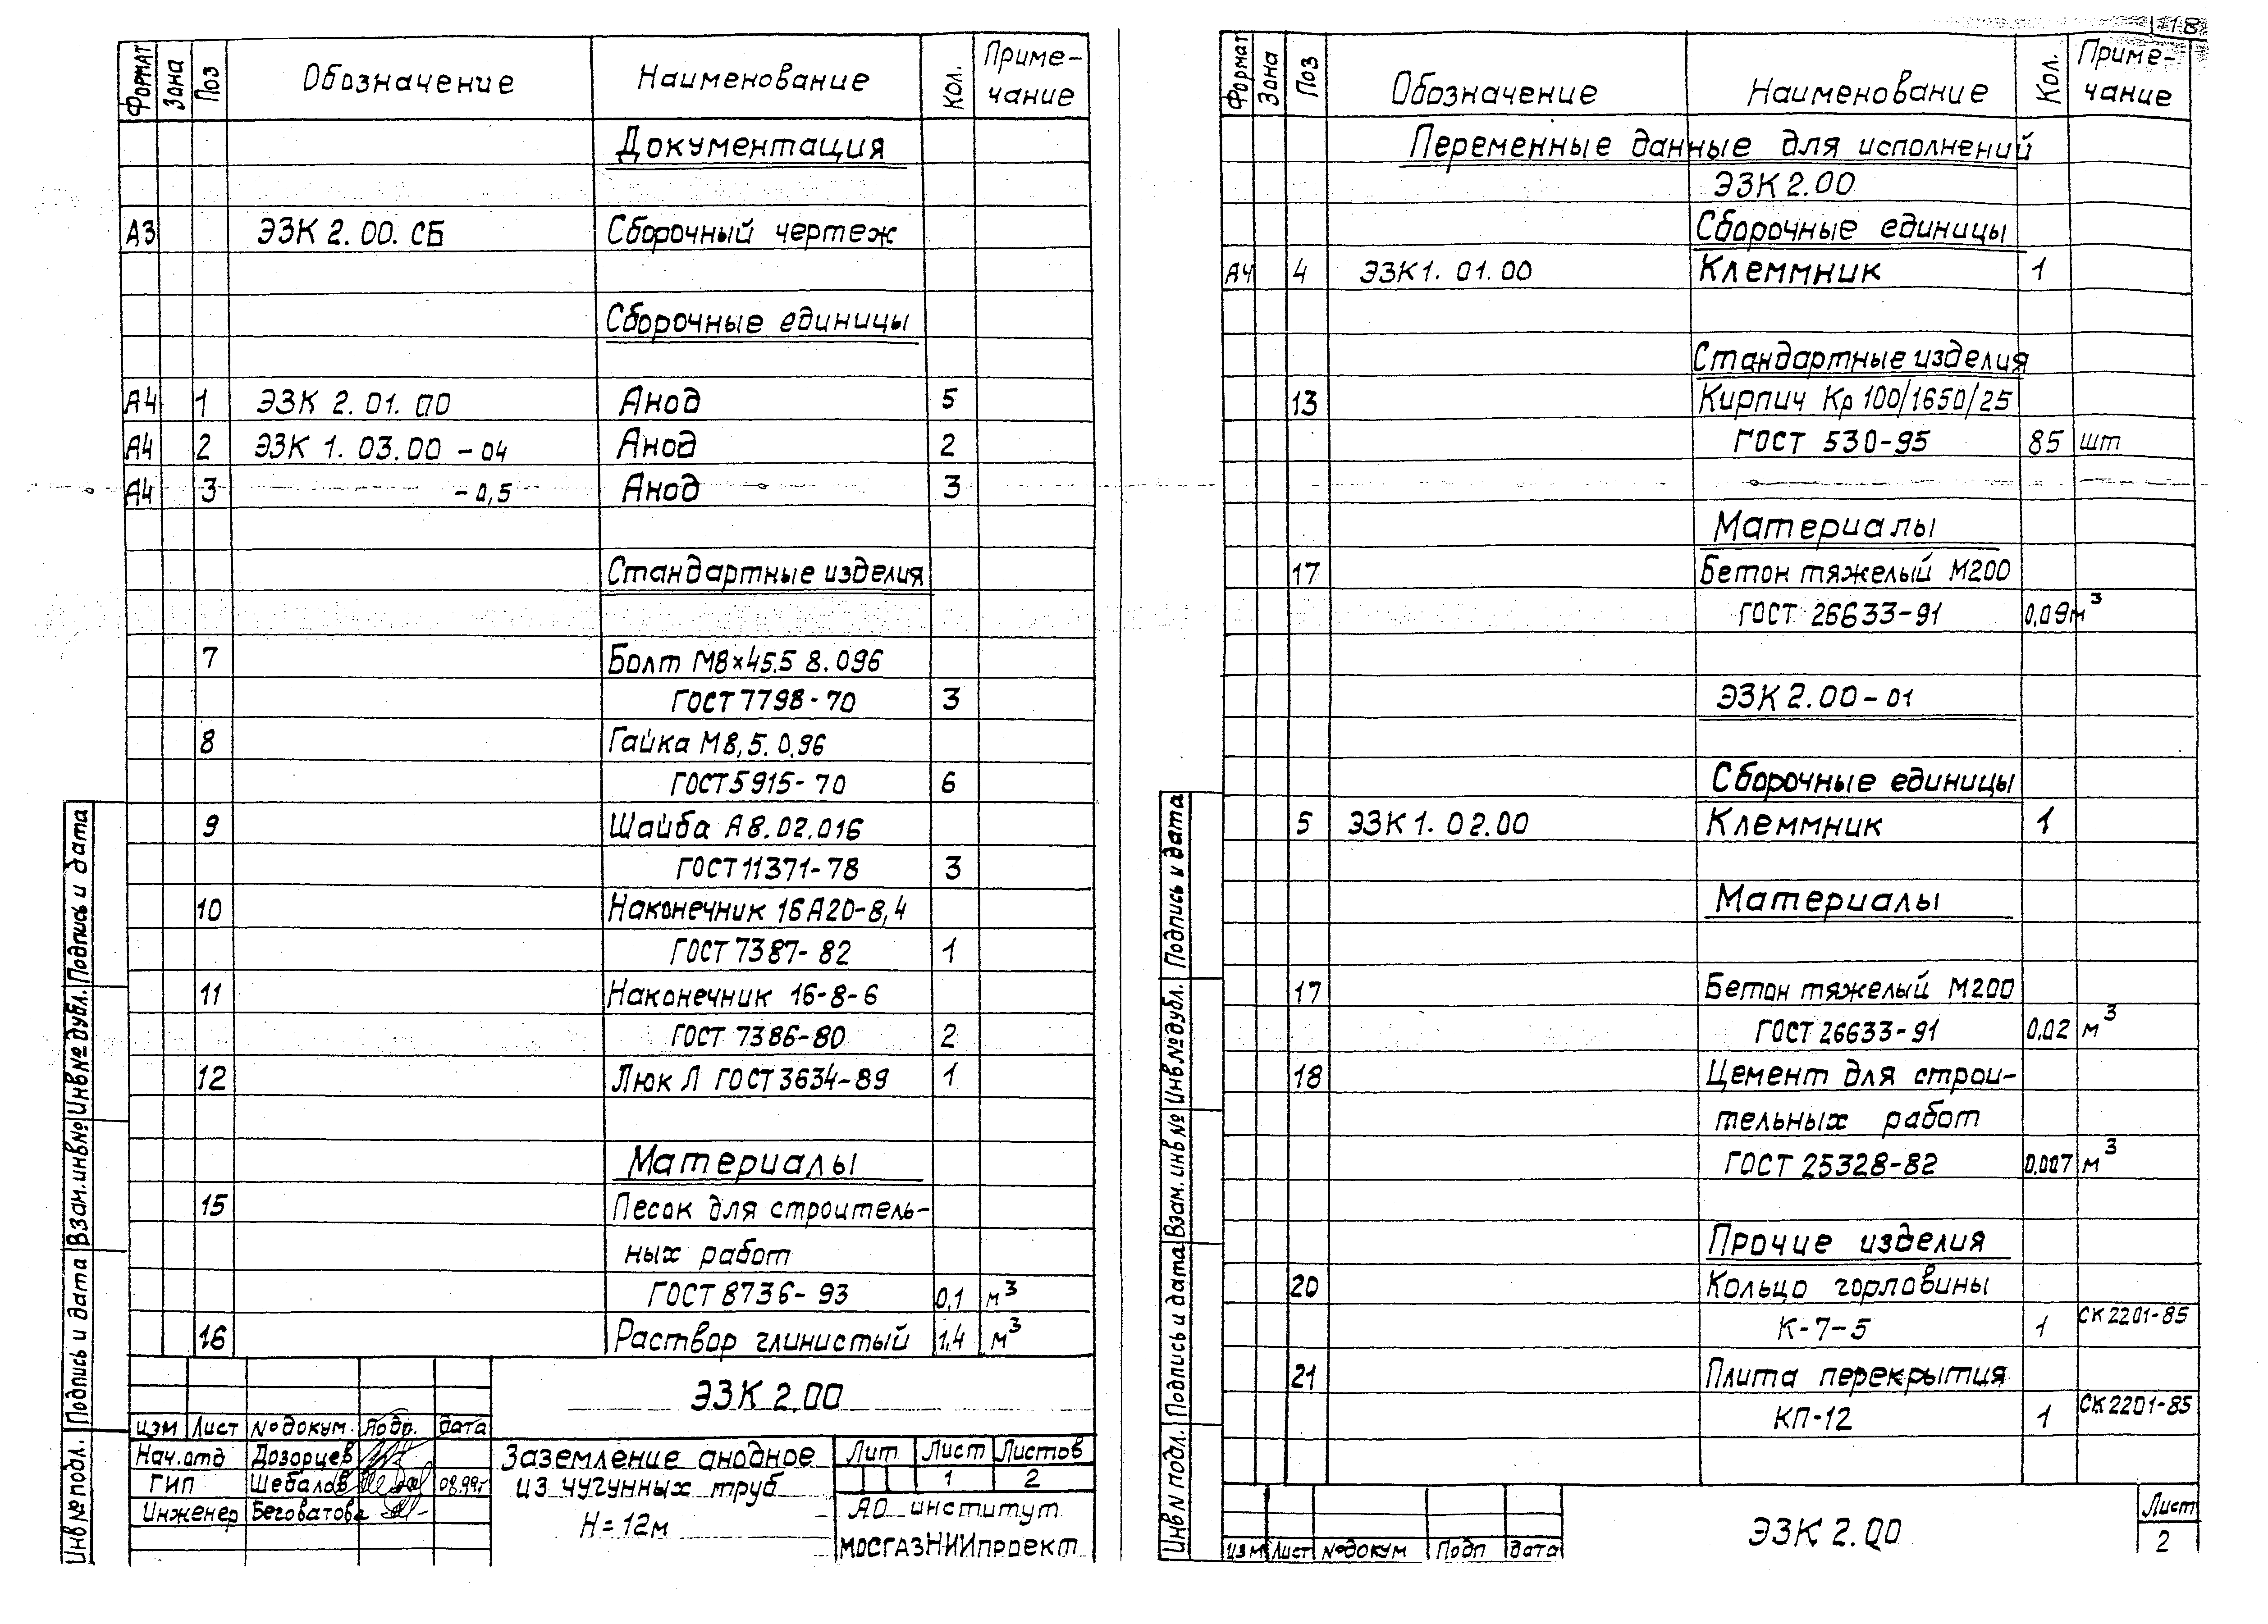 Формат Зона Поз Обозначение Наименование Кол. Приме-
чание
Документация
А3 ЭЗК 2.00.СБ Сборочный чертеж
Сборочные единицы
А4 1 ЭЗК 2.01.00 Анод 5
А4 2 ЭЗК 1.03.00 - 04 Анод 2
А4 3 - 0,5 Анод 3
Стандартные изделия
7 Болт М8×45.5 8.096
ГОСТ 7798-70 3
8 Гайка М8,5.0,96
ГОСТ 5915-70 6
9 Шайба А8.02.016
ГОСТ 11371-78 3
10 Наконечник 16А20-8,4
ГОСТ 7387-82 1
11 Наконечник 16-8-6
ГОСТ 7386-80 2
12 Люк Л ГОСТ 3634-89 1
Материалы
15 Песок для строитель-
ных работ
ГОСТ 8736-93 0,1 м³
16 Раствор глинистый 1,4 м³
ЭЗК 2.00
изм Лист № докум. Подп. дата
Нач.отд Дозорцев
ГИП Шебалов 08.99г
Инженер Беговатова
Заземление анодное
из чугунных труб
Н=12м
Лит Лист Листов
1 2
АО институт
МОСГАЗНИИпроект
Инв № подл. Подпись и дата Взам.инв № Инв № дубл. Подпись и дата
18
Формат Зона Поз Обозначение Наименование Кол. Приме-
чание
Переменные данные для исполнений
ЭЗК 2.00
Сборочные единицы
А4 4 ЭЗК 1.01.00 Клеммник 1
Стандартные изделия
13 Кирпич Кр 100/1650/25
ГОСТ 530-95 85 шт
Материалы
17 Бетон тяжелый М200
ГОСТ 26633-91 0,09 м³
ЭЗК 2.00-01
Сборочные единицы
5 ЭЗК 1.02.00 Клеммник 1
Материалы
17 Бетон тяжелый М200
ГОСТ 26633-91 0,02 м³
18 Цемент для строи-
тельных работ
ГОСТ 25328-82 0,007 м³
Прочие изделия
20 Кольцо горловины
К-7-5 1 СК 2201-85
21 Плита перекрытия
КП-12 1 СК 2201-85
ЭЗК 2.00
Лист
2
изм Лист № докум Подп дата
Инв N подл. Подпись и дата Взам.инв № Инв № дубл. Подпись и дата